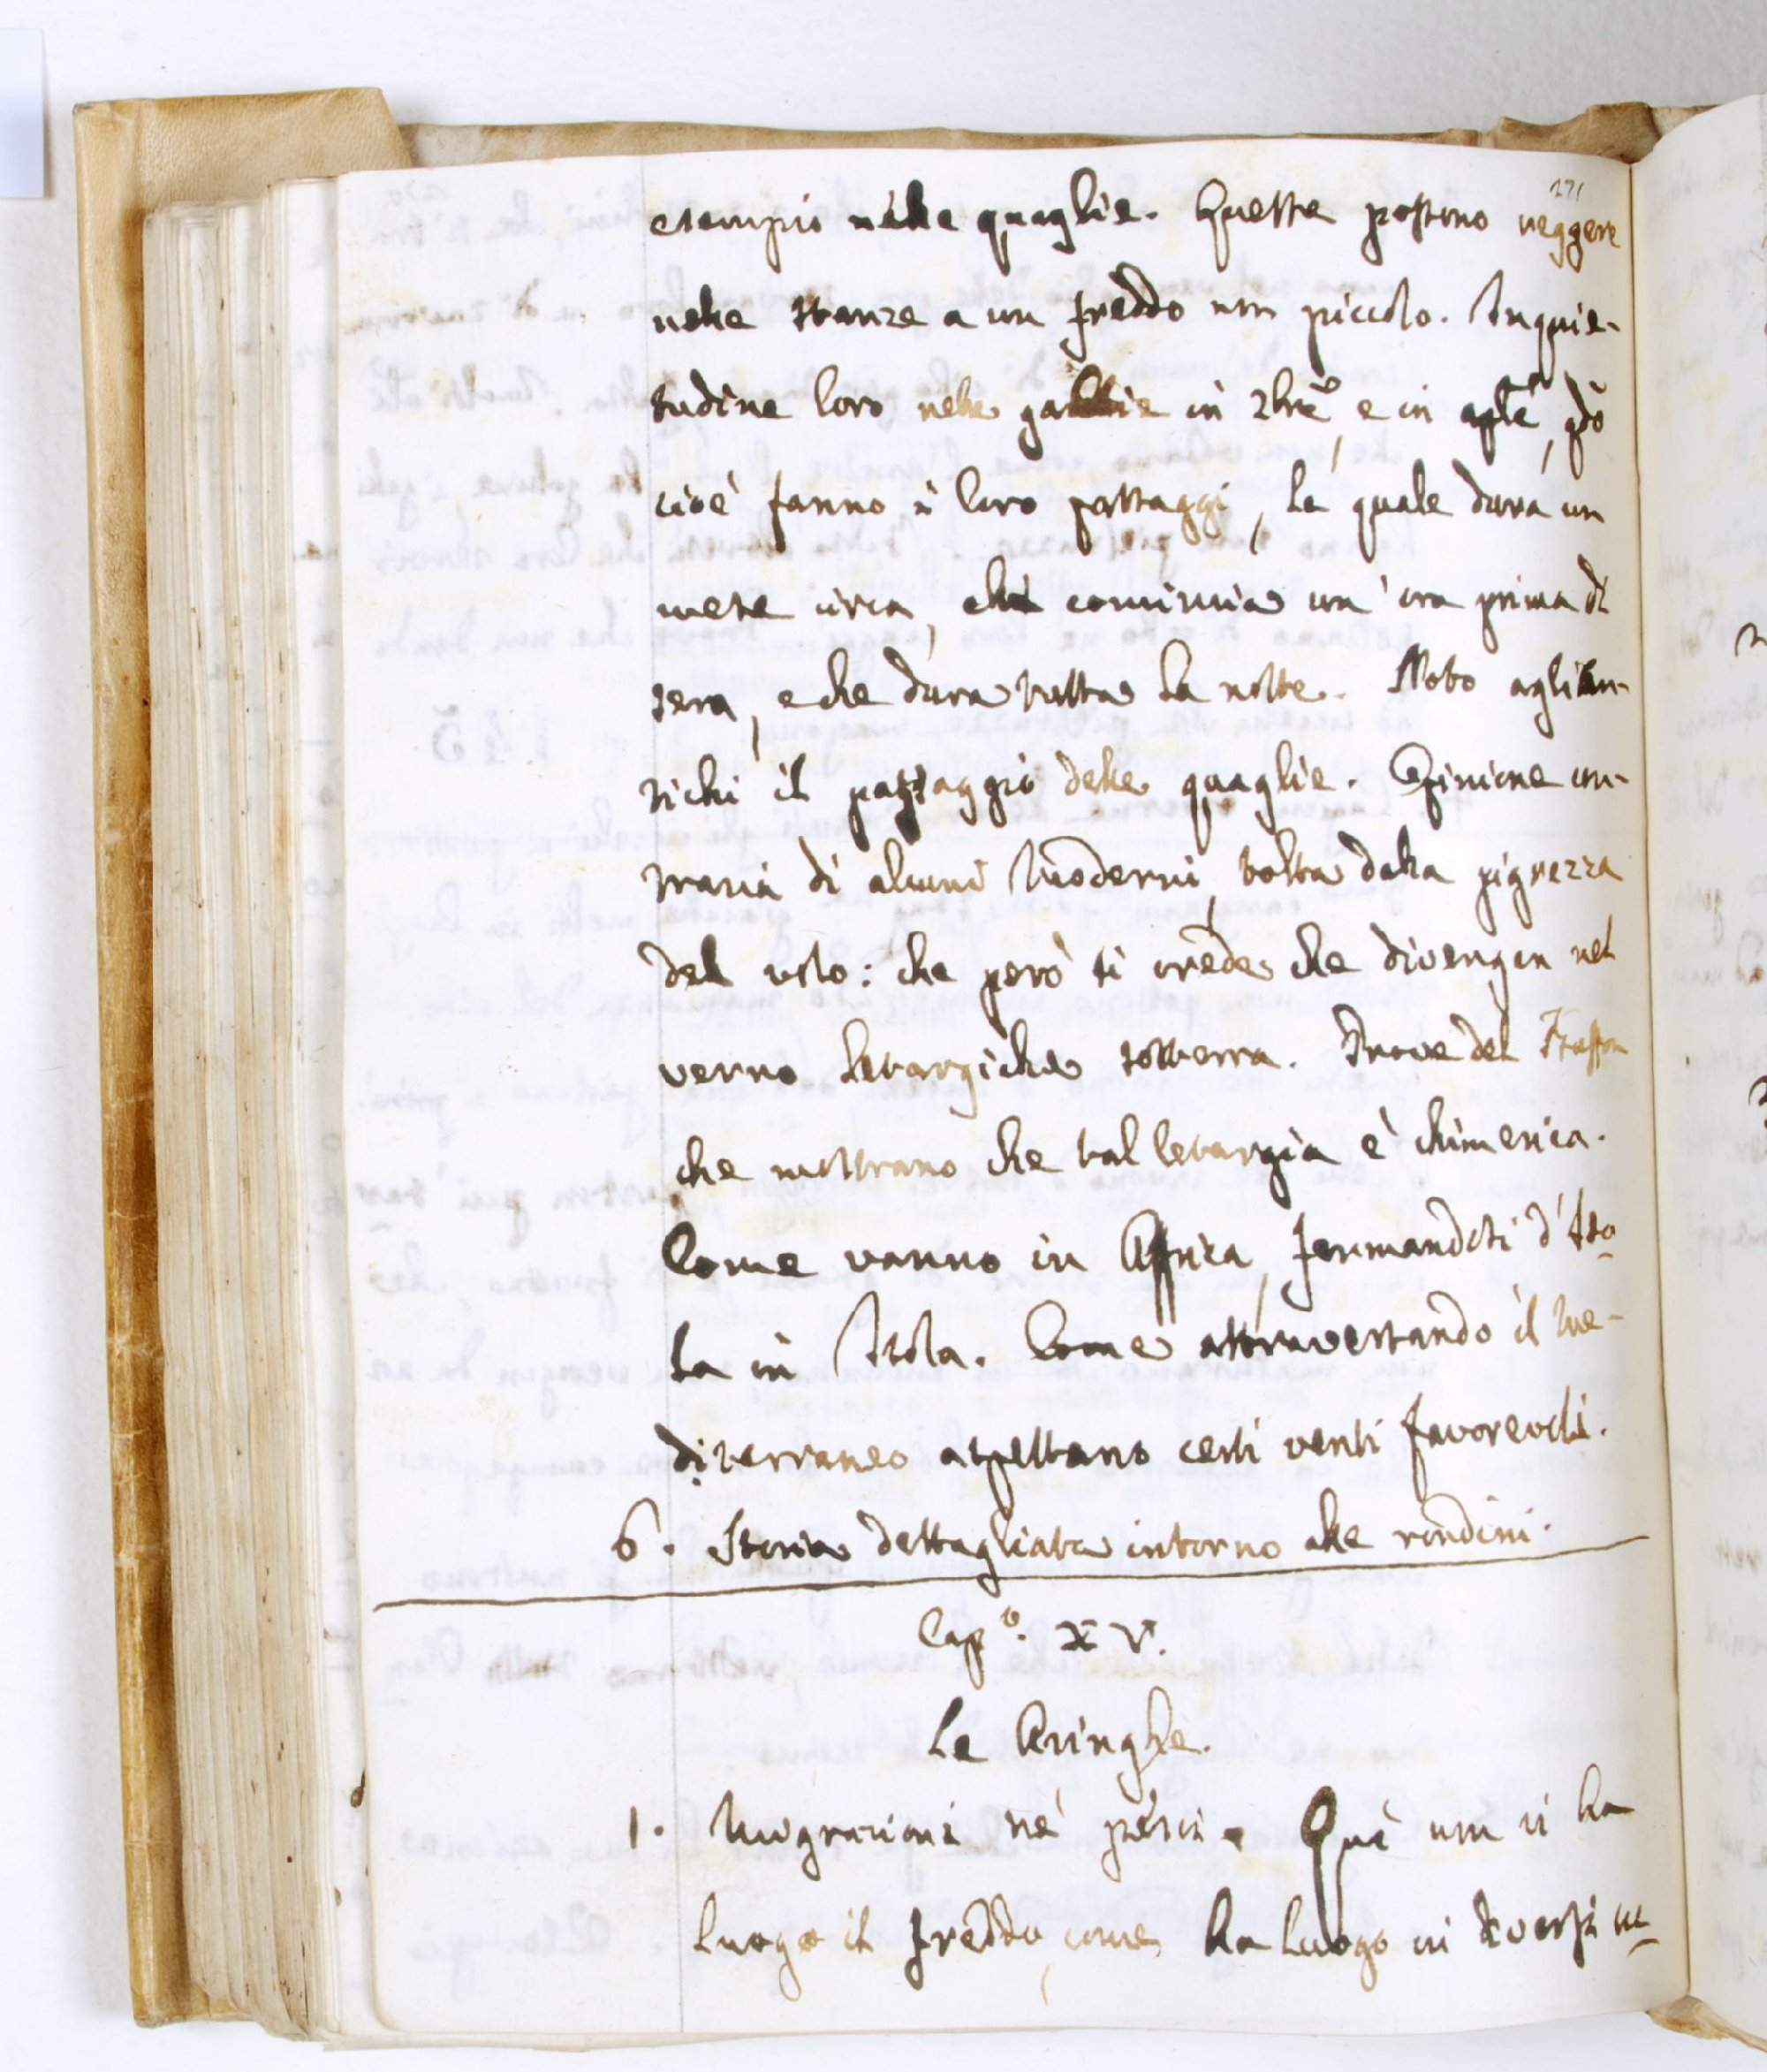 271
esempio nelle quaglie. Queste possono reggere
nelle stanze a un freddo non piccolo. Inquie-
tudine loro nelle gabbie in 7bre, e in aple, qdo
cioè fanno i loro passaggi, la quale dura un
mese circa, che comincia un'ora prima di
sera, e che dura tutta la notte. Noto agli an-
tichi il passaggio delle quaglie. Opinione con-
traria di alcuni Moderni tolta dalla pigrezza
del volo: che però si crede che divengan nel
verno letargiche sotterra. Prove del
che mostrano che tal letargia è chimerica.
Come vanno in Affrica, fermandosi d'Iso-
la in Isola. Come attraversando il Me-
diterraneo aspettano certi venti favorevoli.
6. Storia dettagliata intorno alle rondini.
Capo. XV.
Le Aringhe.
1. Migrazioni ne' pesci. Quì non vi ha
luogo il freddo, come ha luogo in diversi uc-